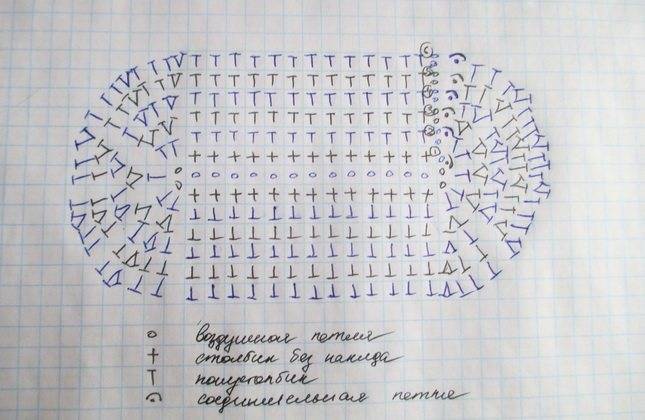 воздушная петля
столбик без накида
полустолбик
соединительная петля